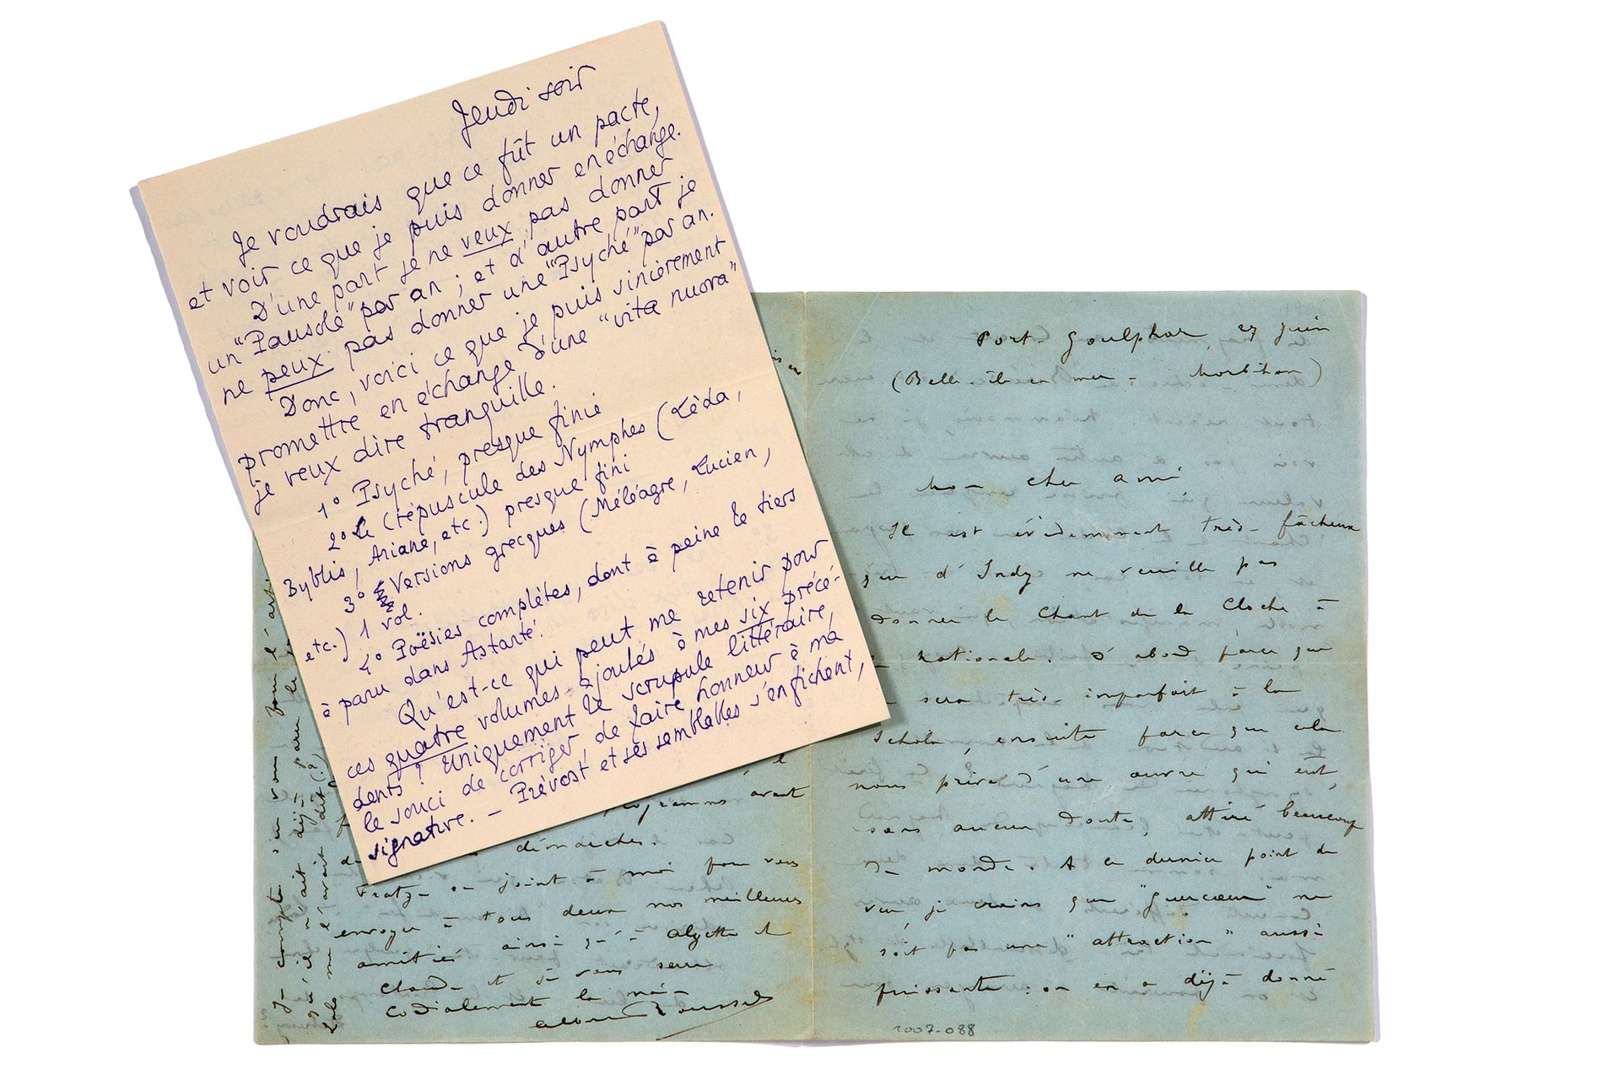 Jeudi soir
Je voudrais que ce fût un pacte,
et voir ce que je puis donner en échange.
D'une part je ne veux pas donner
un "Pausole" par an ; et d'autre part je
ne peux pas donner une "Psyché" par an.
Donc, voici ce que je puis sincèrement
promettre en échange d'une "vita nuova"
je veux dire tranquille.
1° Psyché, presque finie
2° Le Crépuscule des Nymphes (Léda,
Byblis, Ariane, etc.) presque fini
3° Versions grecques (Méléagre, Lucien,
etc.) 1 vol.
4° Poësies complètes, dont à peine le tiers
a paru dans Astarté.
Qu'est-ce qui peut me retenir pour
ces quatre volumes ajoutés à mes six précé-
dents ? Uniquement le scrupule littéraire,
le souci de corriger, de faire honneur à ma
signature. – Prévost et ses semblables s'en fichent,
Port Goulphar, 27 juin
(Belle-île en mer - Morbihan)
Mon cher ami,
Il est évidemment très fâcheux
que d'Indy ne veuille pas
donner le Chant de la Cloche à
Nationale. D'abord parce que
sera très imparfait à la
Schola, ensuite parce que cela
nous prive d'une œuvre qui eût,
sans aucun doute, attiré beaucoup
de monde. A ce dernier point de
vue je crains que "Guercœur" ne
soit pas une "attraction" aussi
puissante : on en a déjà donné
programme avant
démarches.
se joint à moi pour vous
envoyer à tous deux nos meilleures
amitiés ainsi qu'à et
Claude et je vous serre
cordialement la main
Albert Roussel
1007-088